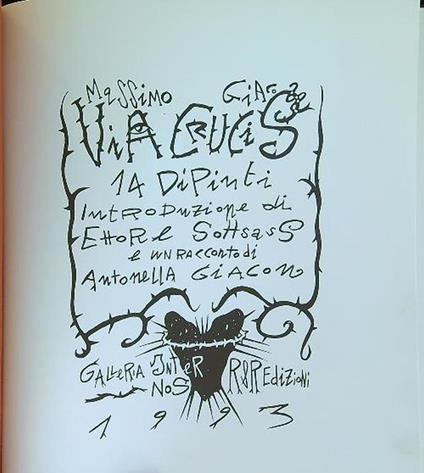 Massimo Giacon
ViA CRUCiS
14 DiPinti
IntroDuzione di
EttoRe SottsasS
e un RACConto di
AntonellA GiAcon
GAlleRiA InteR R&R Edizioni
NoS
1993